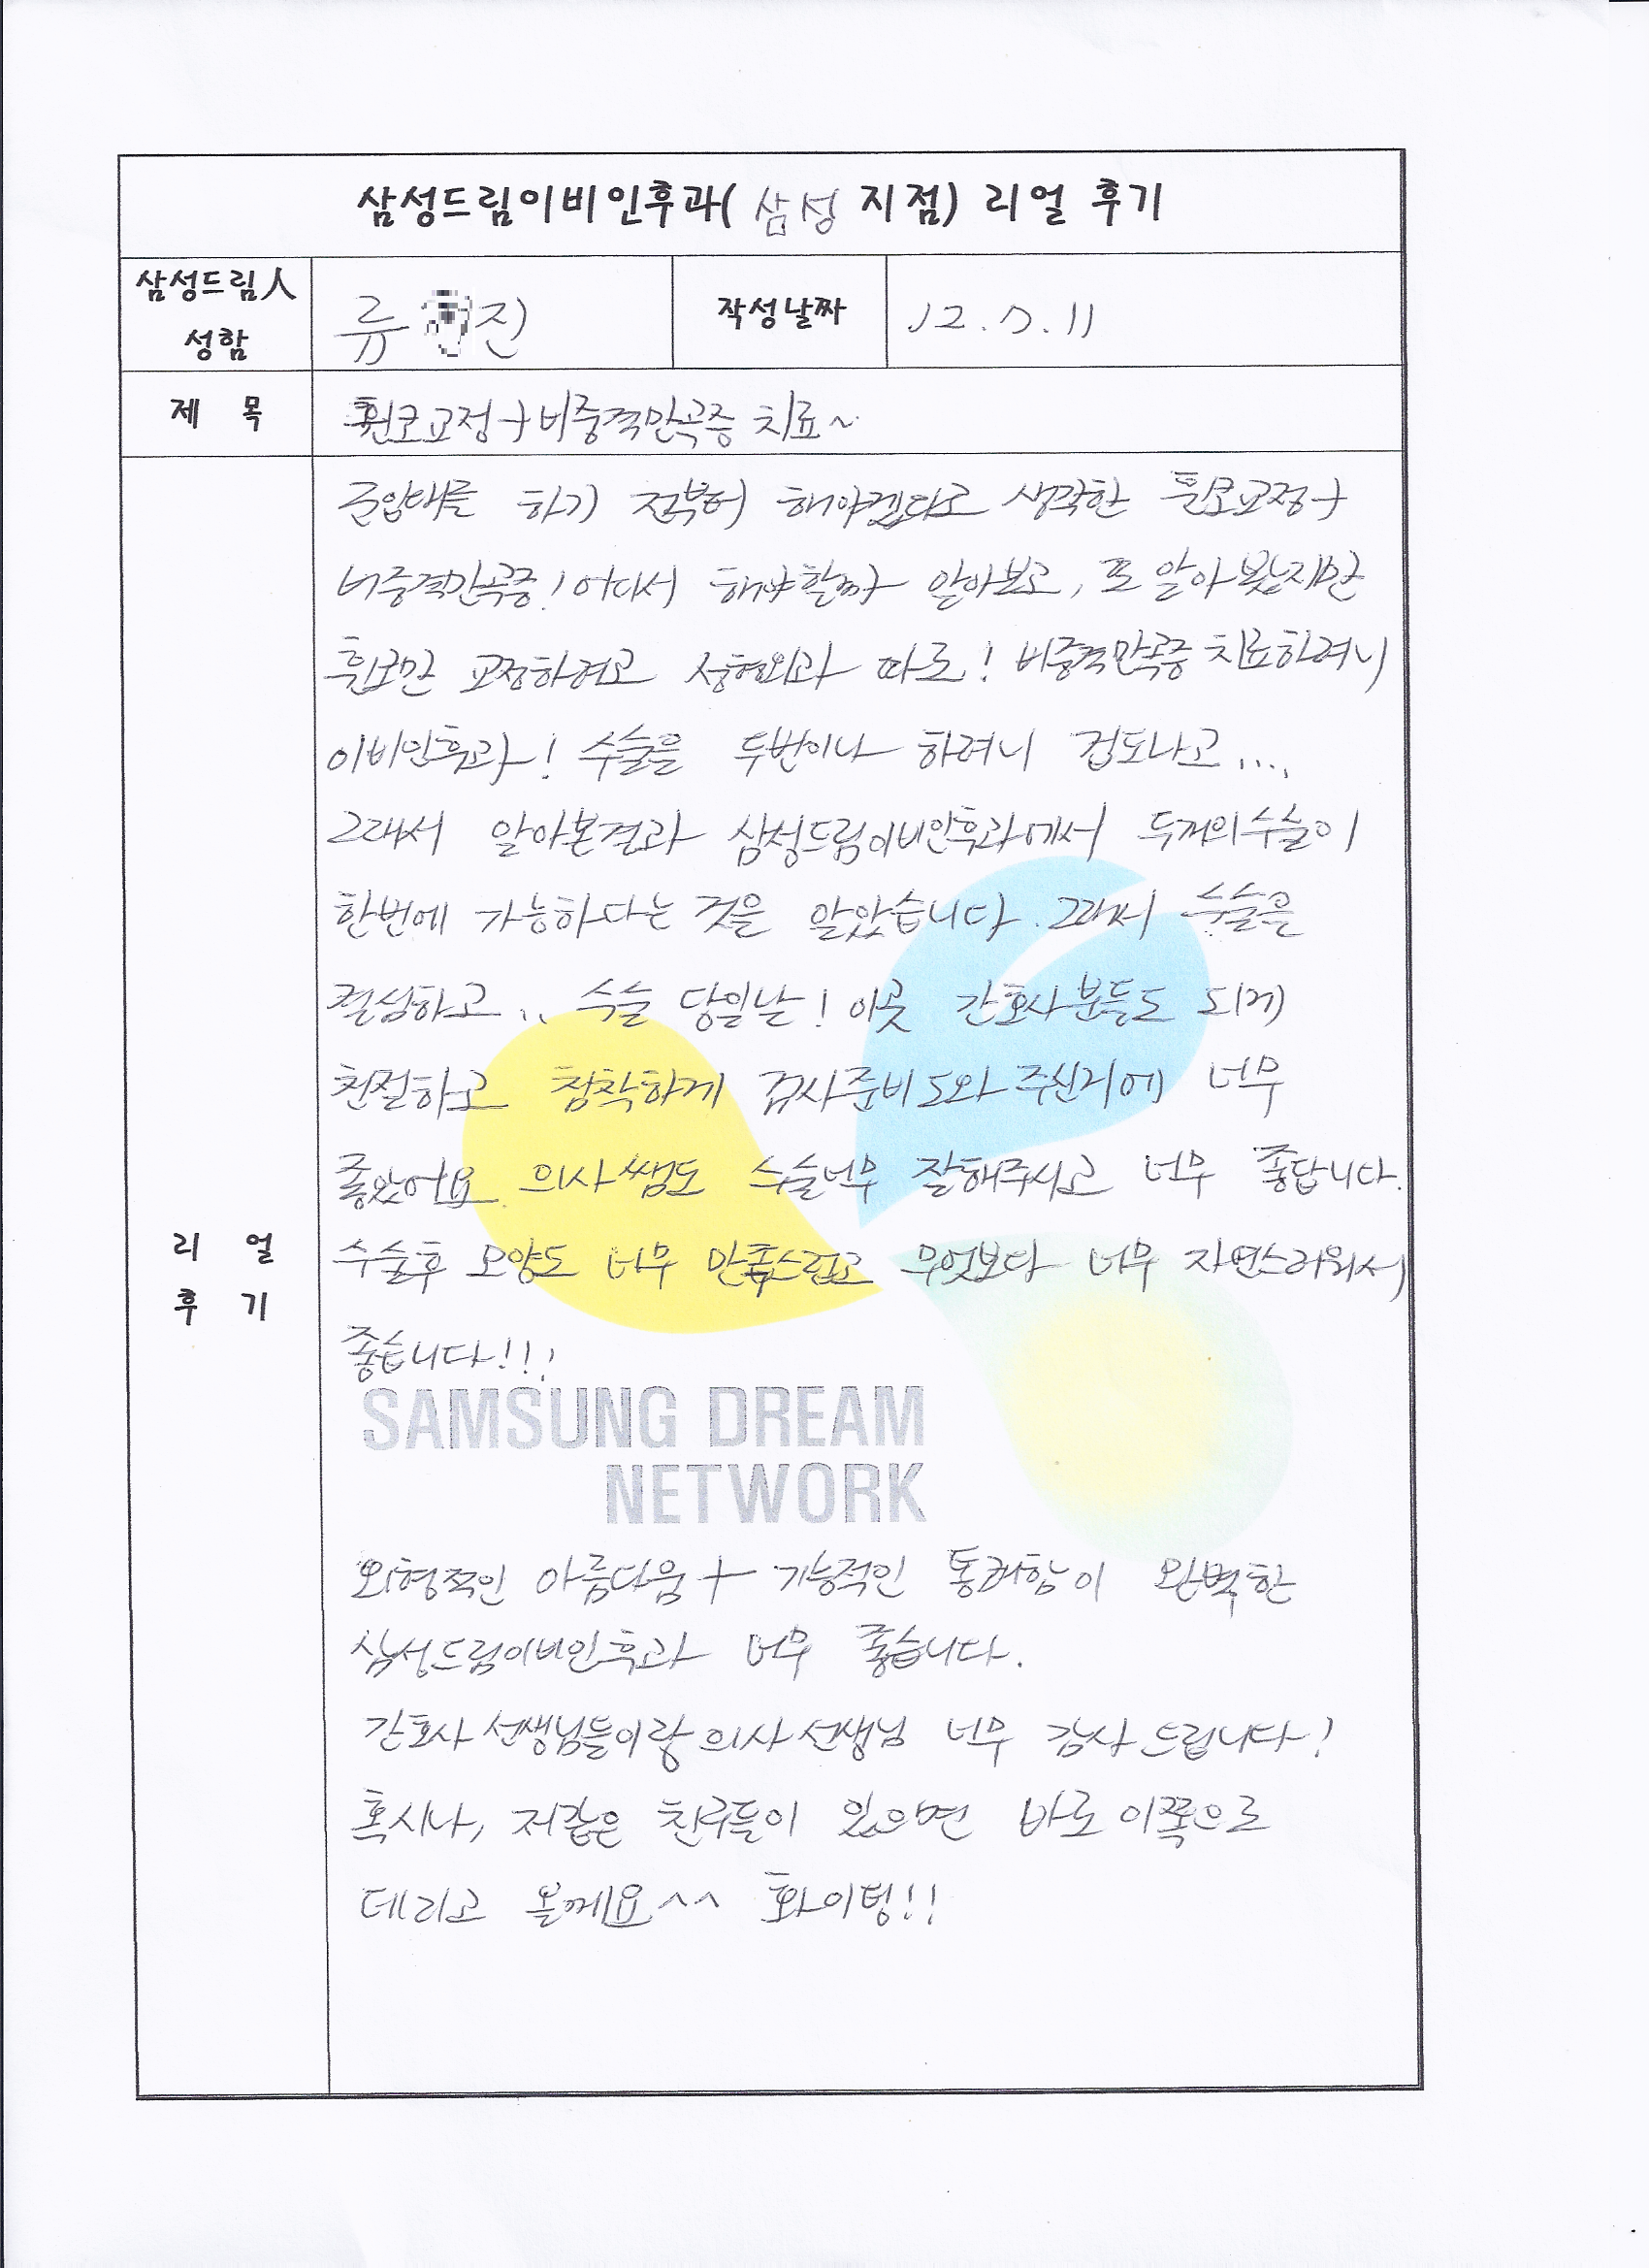 삼성드림이비인후과( 삼성 지점) 리얼 후기
삼성드림人
성함
류 진
작성날짜
12.7.11
제 목
휜코교정+비중격만곡증 치료~
리 얼
후 기
하기 전부터 해야겠다고 생각한 휜코교정+
비중격만곡증! 어디서 해야할까 알아보고, 또 알아봤지만
휜코만 교정하려고 성형외과 따로! 비중격만곡증 치료하려니
이비인후과! 수술을 두번이나 하려니 겁도나고....
그래서 알아본결과 삼성드림이비인후과에서 두개의수술이
한번에 가능하다는 것을 알았습니다. 그래서 수술을
결심하고.. 수술 당일날! 이곳 간호사분들도 되게
친절하고 침착하게 검사준비 도와주신거에 너무
좋았어요 의사쌤도 수술너무 잘해주시고 너무 좋답니다.
수술후 모양도 너무 만족스럽고 무엇보다 너무 자연스러워서
좋습니다!!!
SAMSUNG DREAM
NETWORK
외형적인 아름다움+ 기능적인 통쾌함이 완벽한
삼성드림이비인후과 너무 좋습니다.
간호사 선생님들이랑 의사선생님 너무 감사드립니다!
혹시나, 저같은 친구들이 있으면 바로 이쪽으로
데리고 올께요^^ 화이팅!!